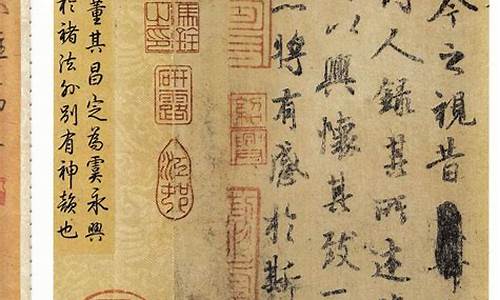 今之視昔
人錄其所述
以興懷其致一
將有感於斯
紹興
江邨
董其昌定為虞永興
於褚法外別有神韻也